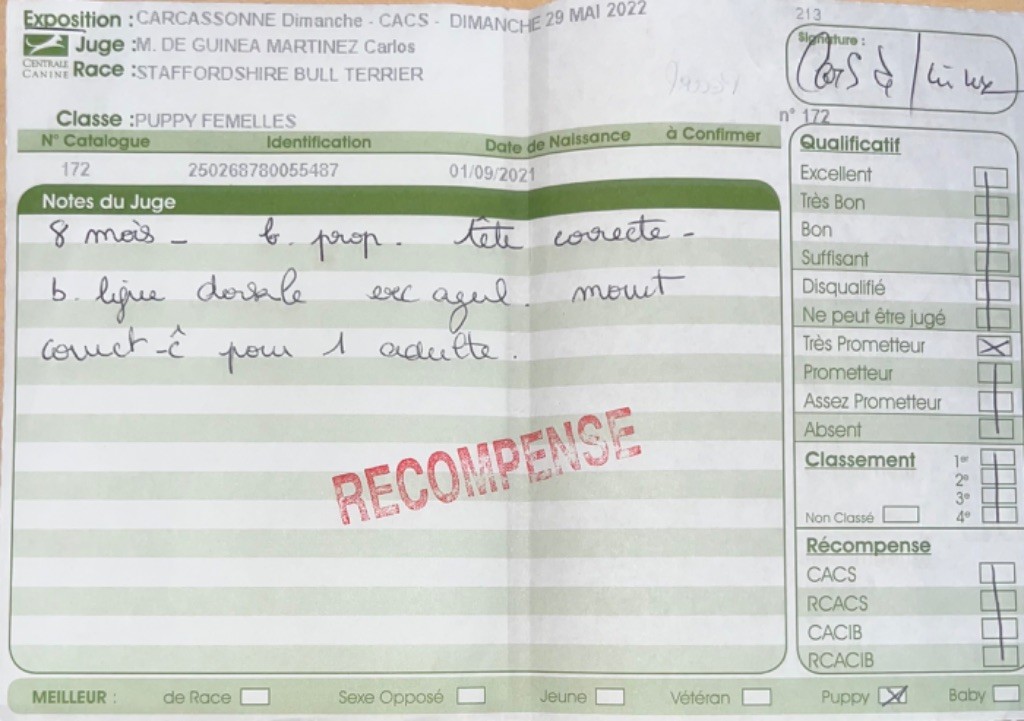 Exposition : CARCASSONNE Dimanche - CACS - DIMANCHE 29 MAI 2022
213
Juge : M. DE GUINEA MARTINEZ Carlos
CENTRALE CANINE
Race : STAFFORDSHIRE BULL TERRIER
Signature :
Classe : PUPPY FEMELLES
n° 172
N° Catalogue Identification Date de Naissance à Confirmer
172 250268780055487 01/09/2021
Notes du Juge
8 mois - b. prop. tête correcte -
b. ligne dorsale exc agul. mouvt
correct - ĉ pour 1 adulte.
RECOMPENSE
Qualificatif
Excellent
Très Bon
Bon
Suffisant
Disqualifié
Ne peut être jugé
Très Prometteur
Prometteur
Assez Prometteur
Absent
Classement
1er
2e
3e
Non Classé 4e
Récompense
CACS
RCACS
CACIB
RCACIB
MEILLEUR : de Race Sexe Opposé Jeune Vétéran Puppy Baby